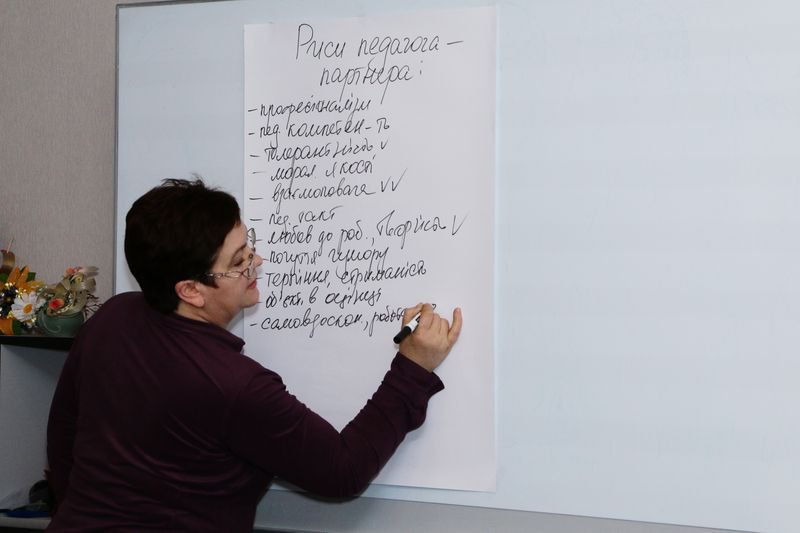 Риси педагога –
партнера:
– професіоналізм
– пед. компетен-ть
– толерантність v
– морал. якості
– взаємоповага vv
– пед. такт
– любов до роб., творчість v
– почуття гумору
– терпіння, стриманість
– об'єкт. в оцінці
– самовдоскон.,